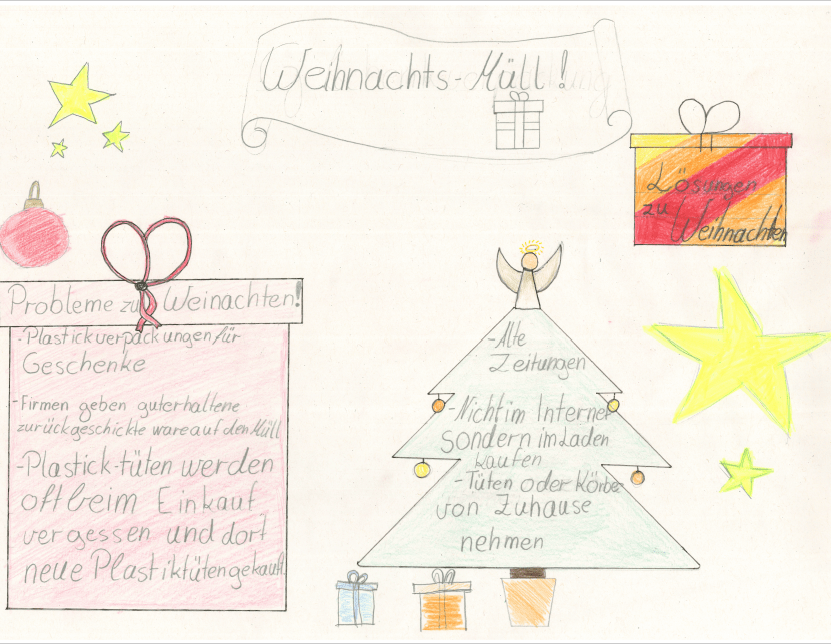 Weihnachts-Müll!
Lösungen
zu Weihnachten
Probleme zu Weinachten!
·Plastickverpackungen für
Geschenke
-Firmen geben guterhaltene
zurückgeschickte ware auf den Müll
-Plastick-tüten werden
oft beim Einkauf
vergessen und dort
neue Plastiktüten gekauft
-Alte
Zeitungen
-Nicht im Internet
sondern im Laden
kaufen
-Tüten oder Körbe
von Zuhause
nehmen